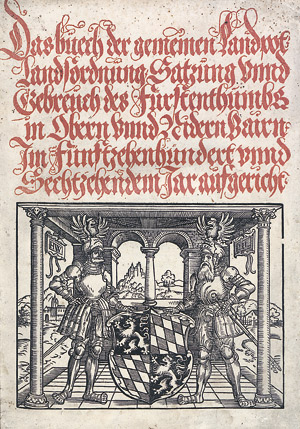 Das buech der gemeinen Landpot
Landsordnung Satzung vnnd
Gebreuch des Fürstenthumbs
in Obern vnnd Nidern Bairn
Im Funftzehenhundert vnnd
Sechtzehendem Jar aufgericht